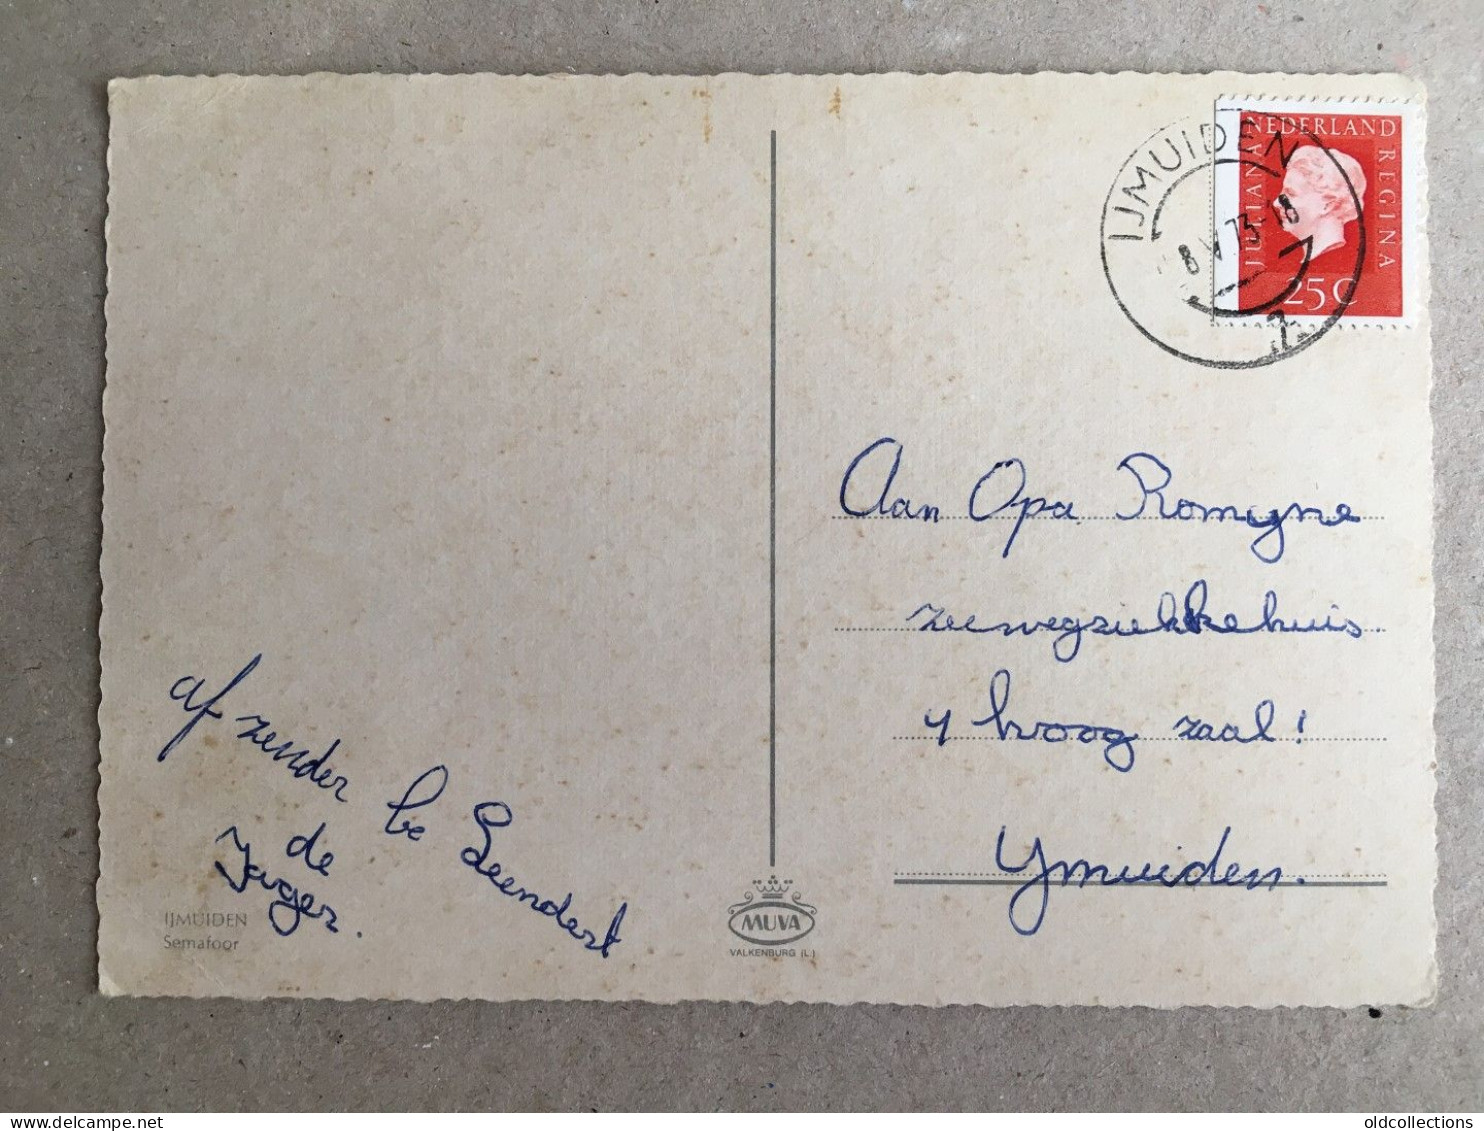 IJMUIDEN
8 V 73-18
NEDERLAND
JULIANA
REGINA
25 C
Aan Opa Romyne
zeewegziekkehuis
4 hvoog zaal!
Ymuiden.
af zender be Leendert
de
Jager.
IJMUIDEN
Semafoor
MUVA
VALKENBURG (L.)
oldcollections